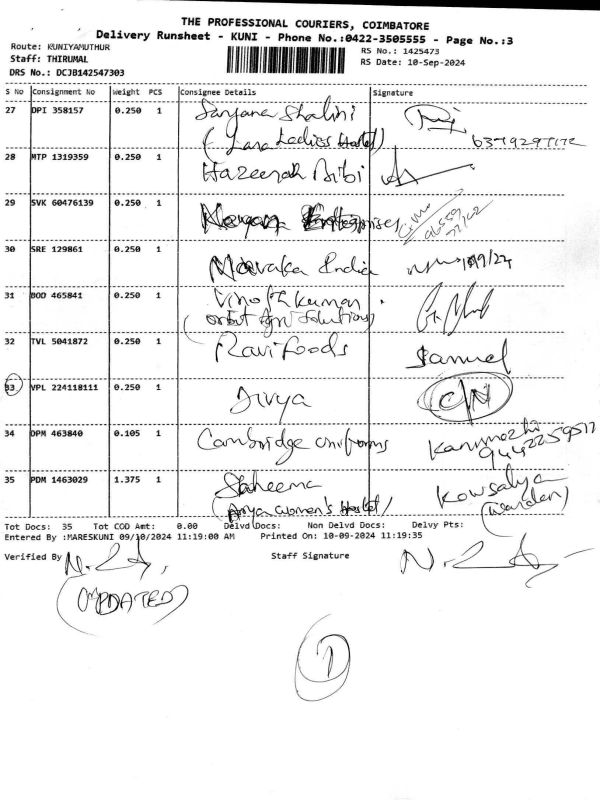 THE PROFESSIONAL COURIERS, COIMBATORE
Delivery Runsheet - KUNI - Phone No.:0422-3505555 - Page No.:3
Route: KUNIYAMUTHUR
RS No.: 1425473
Staff: THIRUMAL
RS Date: 10-Sep-2024
DRS No.: DCJB142547303
S No Consignment No Weight PCS Consignee Details Signature
27 DPI 358157 0.250 1 Sanjana Shalini
(Lara Ladies Hostel)
28 MTP 1319359 0.250 1 Hazeenah Bibi
29 SVK 60476139 0.250 1 Enterprises
30 SRE 129861 0.250 1 India
31 BOD 465841 0.250 1 Vinoth kumar
(orbit Agri Solutions)
32 TVL 5041872 0.250 1 Ravi foods Samuel
33 VPL 224118111 0.250 1 Divya C/N
34 DPM 463840 0.105 1 Cambridge uniforms Kanimozhi
35 PDM 1463029 1.375 1 Shaheema Kowsalya
(Arya women's Hostel) (warden)
Tot Docs: 35 Tot COD Amt: 0.00 Delvd Docs: Non Delvd Docs: Delvy Pts:
Entered By :MARESKUNI 09/10/2024 11:19:00 AM Printed On: 10-09-2024 11:19:35
Verified By Staff Signature
(UPDATED)
1